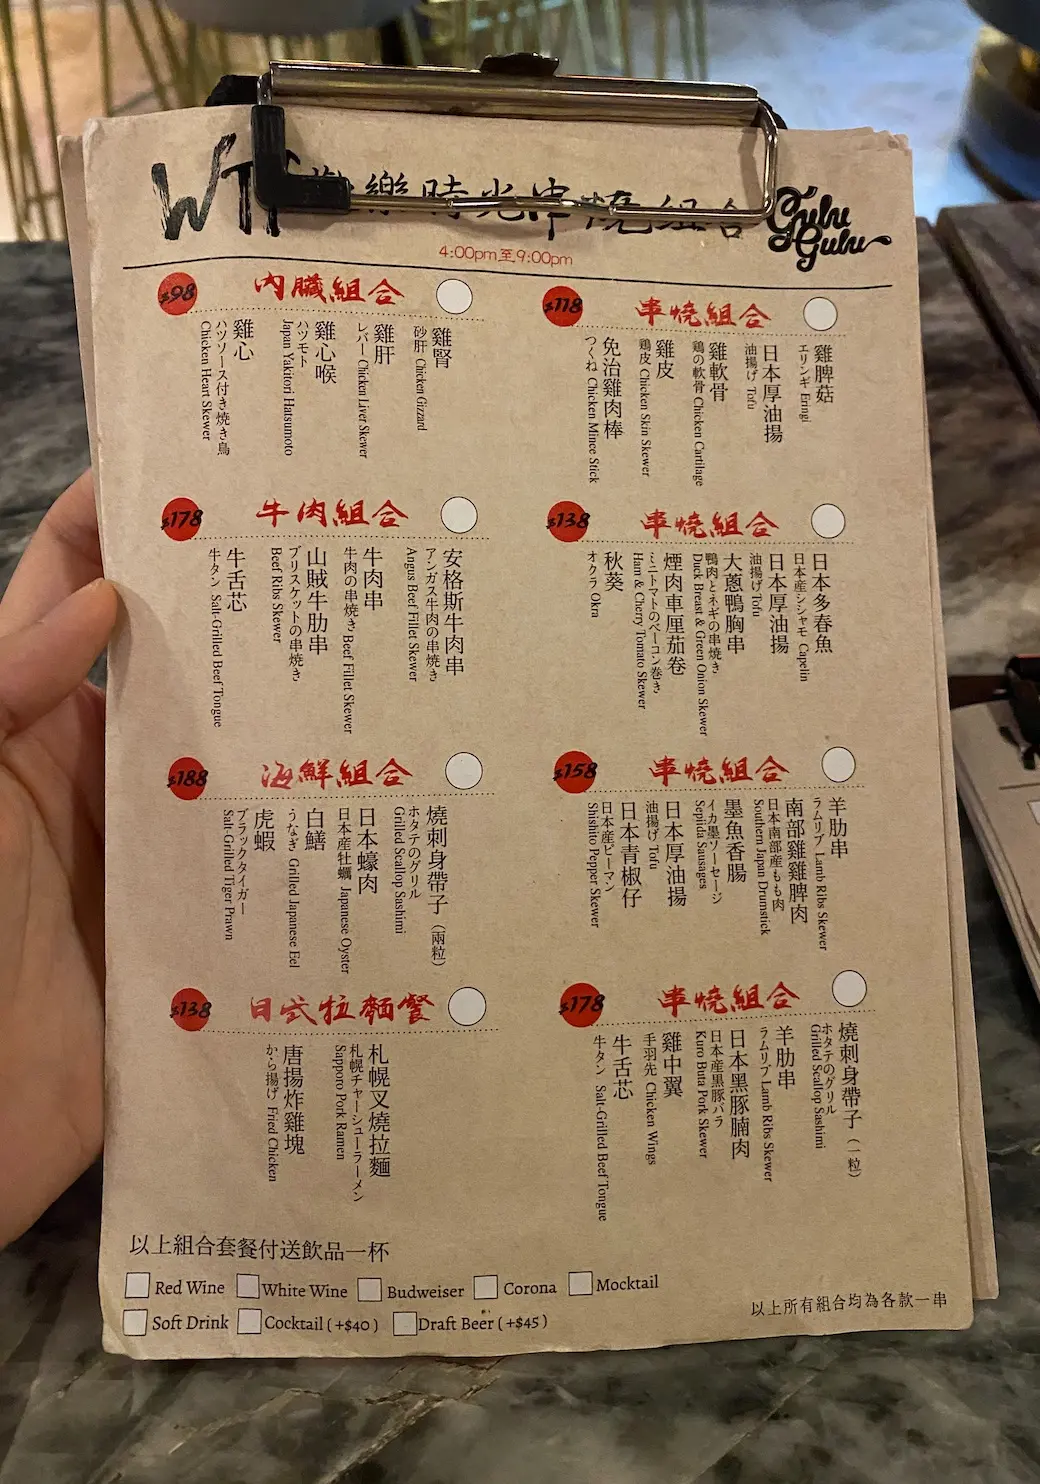 樂時光串燒組合
Gulu Gulu
4:00pm至9:00pm
$98
內臟組合
雞腎
砂肝 Chicken Gizzard
雞肝
レバー Chicken Liver Skewer
雞心喉
ハツモト
Japan Yakitori Hatsumoto
雞心
ハツソース付き焼き鳥
Chicken Heart Skewer
$118
串燒組合
雞脾菇
エリンギ Eringi
日本厚油揚
油揚げ Tofu
雞軟骨
鶏の軟骨 Chicken Cartilage
雞皮
鶏皮 Chicken Skin Skewer
免治雞肉棒
つくね Chicken Mince Stick
$178
牛肉組合
安格斯牛肉串
アンガス牛肉の串焼き
Angus Beef Fillet Skewer
牛肉串
牛肉の串焼き Beef Fillet Skewer
山賊牛肋串
ブリスケットの串焼き
Beef Ribs Skewer
牛舌芯
牛タン Salt-Grilled Beef Tongue
$138
串燒組合
日本多春魚
日本産シシャモ Capelin
日本厚油揚
油揚げ Tofu
大蔥鴨胸串
鴨肉とネギの串焼き
Duck Breast & Green Onion Skewer
煙肉車厘茄卷
ミニトマトのベーコン巻き
Ham & Cherry Tomato Skewer
秋葵
オクラ Okra
$188
海鮮組合
燒刺身帶子（兩粒）
ホタテのグリル
Grilled Scallop Sashimi
日本蠔肉
日本産牡蠣 Japanese Oyster
白鱔
うなぎ Grilled Japanese Eel
虎蝦
ブラックタイガー
Salt-Grilled Tiger Prawn
$158
串燒組合
羊肋串
ラムリブ Lamb Ribs Skewer
南部雞雞脾肉
日本南部産もも肉
Southern Japan Drumstick
墨魚香腸
イカ墨ソーセージ
Sepiida Sausages
日本厚油揚
油揚げ Tofu
日本青椒仔
日本産ピーマン
Shishito Pepper Skewer
$138
日式拉麵餐
札幌叉燒拉麵
札幌チャーシューラーメン
Sapporo Pork Ramen
唐揚炸雞塊
から揚げ Fried Chicken
$178
串燒組合
燒刺身帶子（一粒）
ホタテのグリル
Grilled Scallop Sashimi
羊肋串
ラムリブ Lamb Ribs Skewer
日本黑豚腩肉
日本産黒豚バラ
Kuro Buta Pork Skewer
雞中翼
手羽先 Chicken Wings
牛舌芯
牛タン Salt-Grilled Beef Tongue
以上組合套餐付送飲品一杯
Red Wine White Wine Budweiser Corona Mocktail
Soft Drink Cocktail ( +$40 ) Draft Beer ( +$45 )
以上所有組合均為各款一串